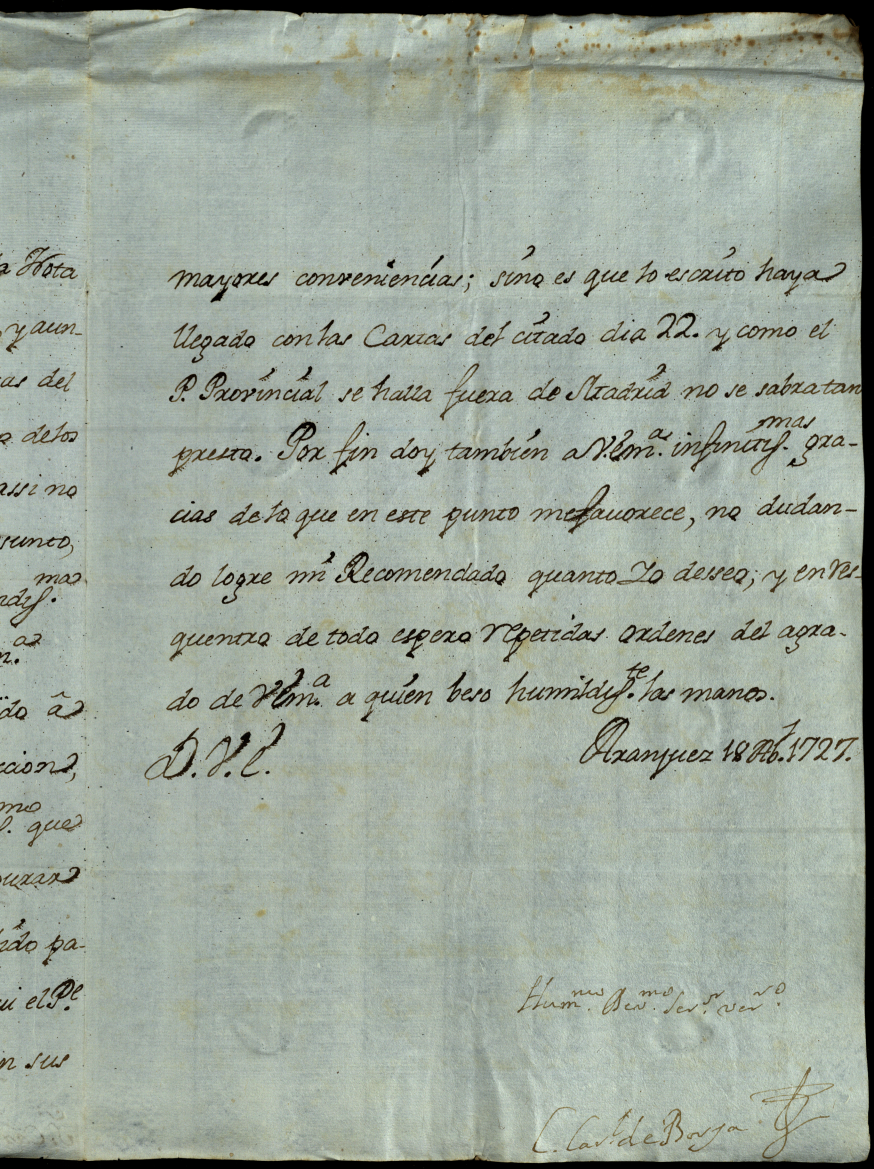 a Nota
y aun-
as del
o de los
assi no
sunto,
ndiss.mas
n.as
do â
ccion,
mo que
urar
ido pa-
ui el P.e
n sus
mayores conveniencias; sino es que lo escrito haya
llegado con las Cartas del citado dia 22. y como el
P. Provincial se halla fuera de Madrid no se sabra tan
presto. Por fin doy tambien a V.Em.a infinitiss.mas gra-
cias de lo que en este punto me favorece, no dudan-
do logre mi Recomendado quanto Yo desseo; y en res-
quentro de todo espero repetidas ordenes del agra-
do de V.Em.a a quien beso humildiss.te las manos.
D.V.E. Aranjuez 18 Ab.l 1727.
Hum.mo Dev.mo Ser.r ver.ro
C. Car.l de Borja